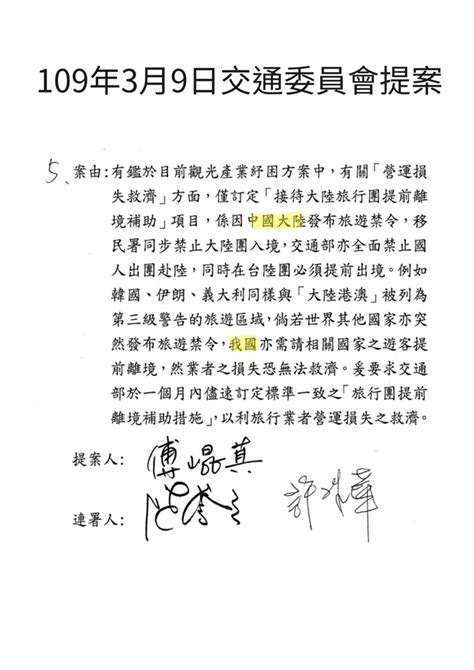 109年3月9日交通委員會提案
5、案由:有鑑於目前觀光產業紓困方案中，有關「營運損
失救濟」方面，僅訂定「接待大陸旅行團提前離
境補助」項目，係因中國大陸發布旅遊禁令，移
民署同步禁止大陸團入境，交通部亦全面禁止國
人出團赴陸，同時在台陸團必須提前出境。例如
韓國、伊朗、義大利同樣與「大陸港澳」被列為
第三級警告的旅遊區域，倘若世界其他國家亦突
然發布旅遊禁令，我國亦需請相關國家之遊客提
前離境，然業者之損失恐無法救濟。爰要求交通
部於一個月內儘速訂定標準一致之「旅行團提前
離境補助措施」，以利旅行業者營運損失之救濟。
提案人: 傅崐萁
連署人: